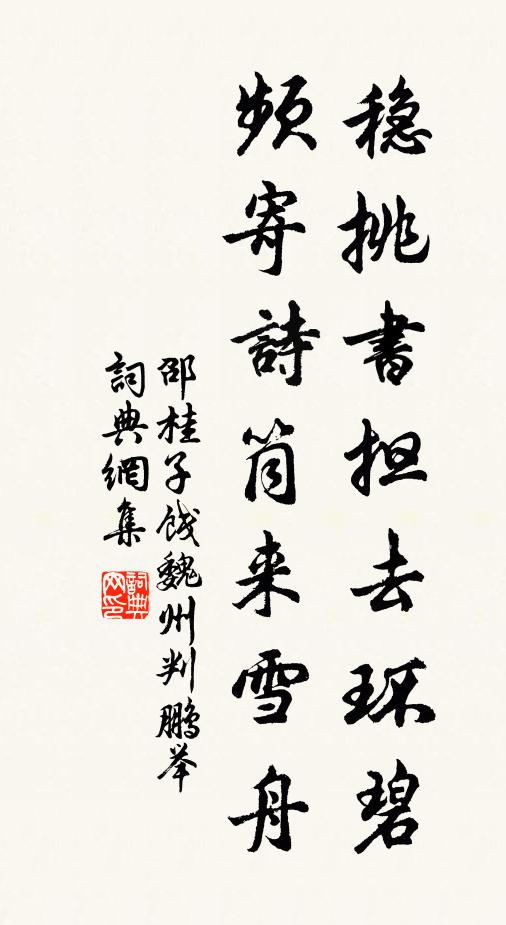 稳挑書担去环碧
頻寄詩筒来雪舟
邵桂子餞魏州判鵬举
詞典網集
詞典网印